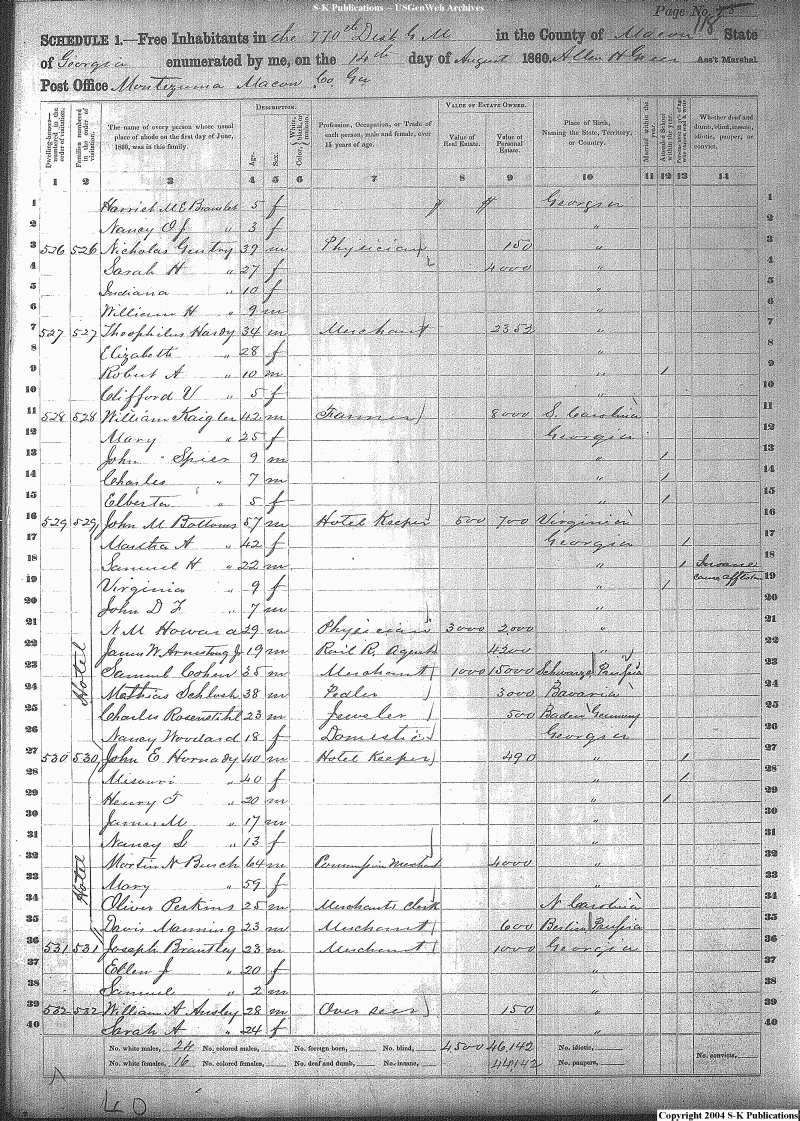 S-K Publications -- USGenWeb Archives
Page No. 118
SCHEDULE 1.—Free Inhabitants in the 770th Dist G M in the County of Macon State
of Georgia enumerated by me, on the 14th day of August 1860. Allen H Greer Ass't Marshal
Post Office Montezuma Macon Co Ga
Dwelling-houses—numbered in the order of visitation.
Families numbered in the order of visitation.
The name of every person whose usual place of abode on the first day of June, 1860, was in this family.
DESCRIPTION.
Age.
Sex.
Color, {White, black, or mulatto.
Profession, Occupation, or Trade of each person, male and female, over 15 years of age.
VALUE OF ESTATE OWNED.
Value of Real Estate.
Value of Personal Estate.
Place of Birth, Naming the State, Territory, or Country.
Married within the year.
Whether deaf and dumb, blind, insane, idiotic, pauper, or convict.
1 2 3 4 5 6 7 8 9 10 11 12 13 14
1 Harriet M E Brantley 5 f Georgia 1
2 Nancy O J " 3 f " 2
3 526 526 Nicholas Gentry 39 m Physician 150 " 3
4 Sarah H " 27 f 4000 " 4
5 Indiana " 10 f " 5
6 William H " 9 m " 6
7 527 527 Theophilus Hardy 34 m Merchant 2352 " 7
8 Elizabeth " 28 f " 8
9 Robert A " 10 m " 1 9
10 Clifford V " 5 f " 10
11 528 528 William Kaigler 42 m Farmer 8000 S. Carolina 11
12 Mary " 25 f Georgia 12
13 John Spier 9 m " 1 13
14 Charles " 7 m " 1 14
15 Elberta " 5 f " 1 15
16 529 529 John M Bottoms 57 m Hotel Keeper 500 700 Virginia 16
17 Martha A " 42 f Georgia 1 17
18 Samuel H " 22 m " 1 Insane 18
19 Virginia " 9 f " 1 19
20 John D F " 7 m " 20
21 N M Howard 29 m Physician 3000 2,000 " 21
22 James W Armstrong Jr 19 m Rail R. Agent 4200 " 22
Hotel
23 Samuel Cohen 35 m Merchant 1000 15000 Prussia 23
24 Mathias Schloch 38 m Pedler 3000 Bavaria 24
25 Charles Rosenstihl 23 m Jeweler 500 Baden Germany 25
26 Nancy Woodard 18 f Domestic Georgia 26
27 530 530 John E Hornady 40 m Hotel Keeper 490 " 1 27
28 Missouri " 40 f " 1 28
29 Henry T " 20 m " 1 29
30 James M " 17 m " 30
31 Nancy L " 13 f " 31
32 Martin N Burch 64 m Commission Merchant 4000 " 32
33 Mary " 59 f " 33
Hotel
34 Oliver Perkins 25 m Merchants Clerk N Carolina 34
35 Davis Manning 23 m Merchant 600 Berlin Prussia 35
36 531 531 Joseph Brantley 23 m Merchant 1000 Georgia 36
37 Ellen J " 20 f " 37
38 Samuel " 2 m " 38
39 532 532 William A Ansley 28 m Over seer 150 " 39
40 Sarah A " 24 f " 40
No. white males, 24 No. colored males, No. foreign born, No. blind, 4500 46,142 No. idiotic, No. convicts,
No. white females, 16 No. colored females, No. deaf and dumb, No. insane, 44,142 No. paupers,
40
Copyright 2004 S-K Publications